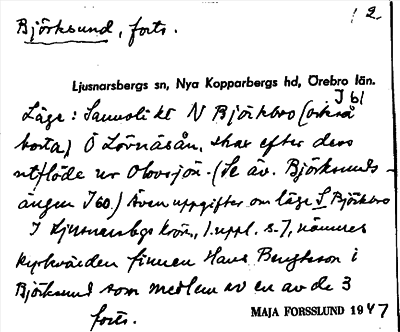 Björksund, forts.
2.
Ljusnarsbergs sn, Nya Kopparbergs hd, Örebro län.
I 61
Läge: Sannolikt N Björkbro (också
borta) Ö Lörnäsån, strax efter dess
utflöde ur Olovsjön. (Se äv. Björksunds-
ängen I 60.) Även uppgifter om läge S Björkbro
I Ljusnarsbgs krön., 1. uppl. s. 7, nämnes
kyrkvärden finnen Hans Bengtsson i
Björksund som medlem av en av de 3
forts.
MAJA FORSSLUND 1947